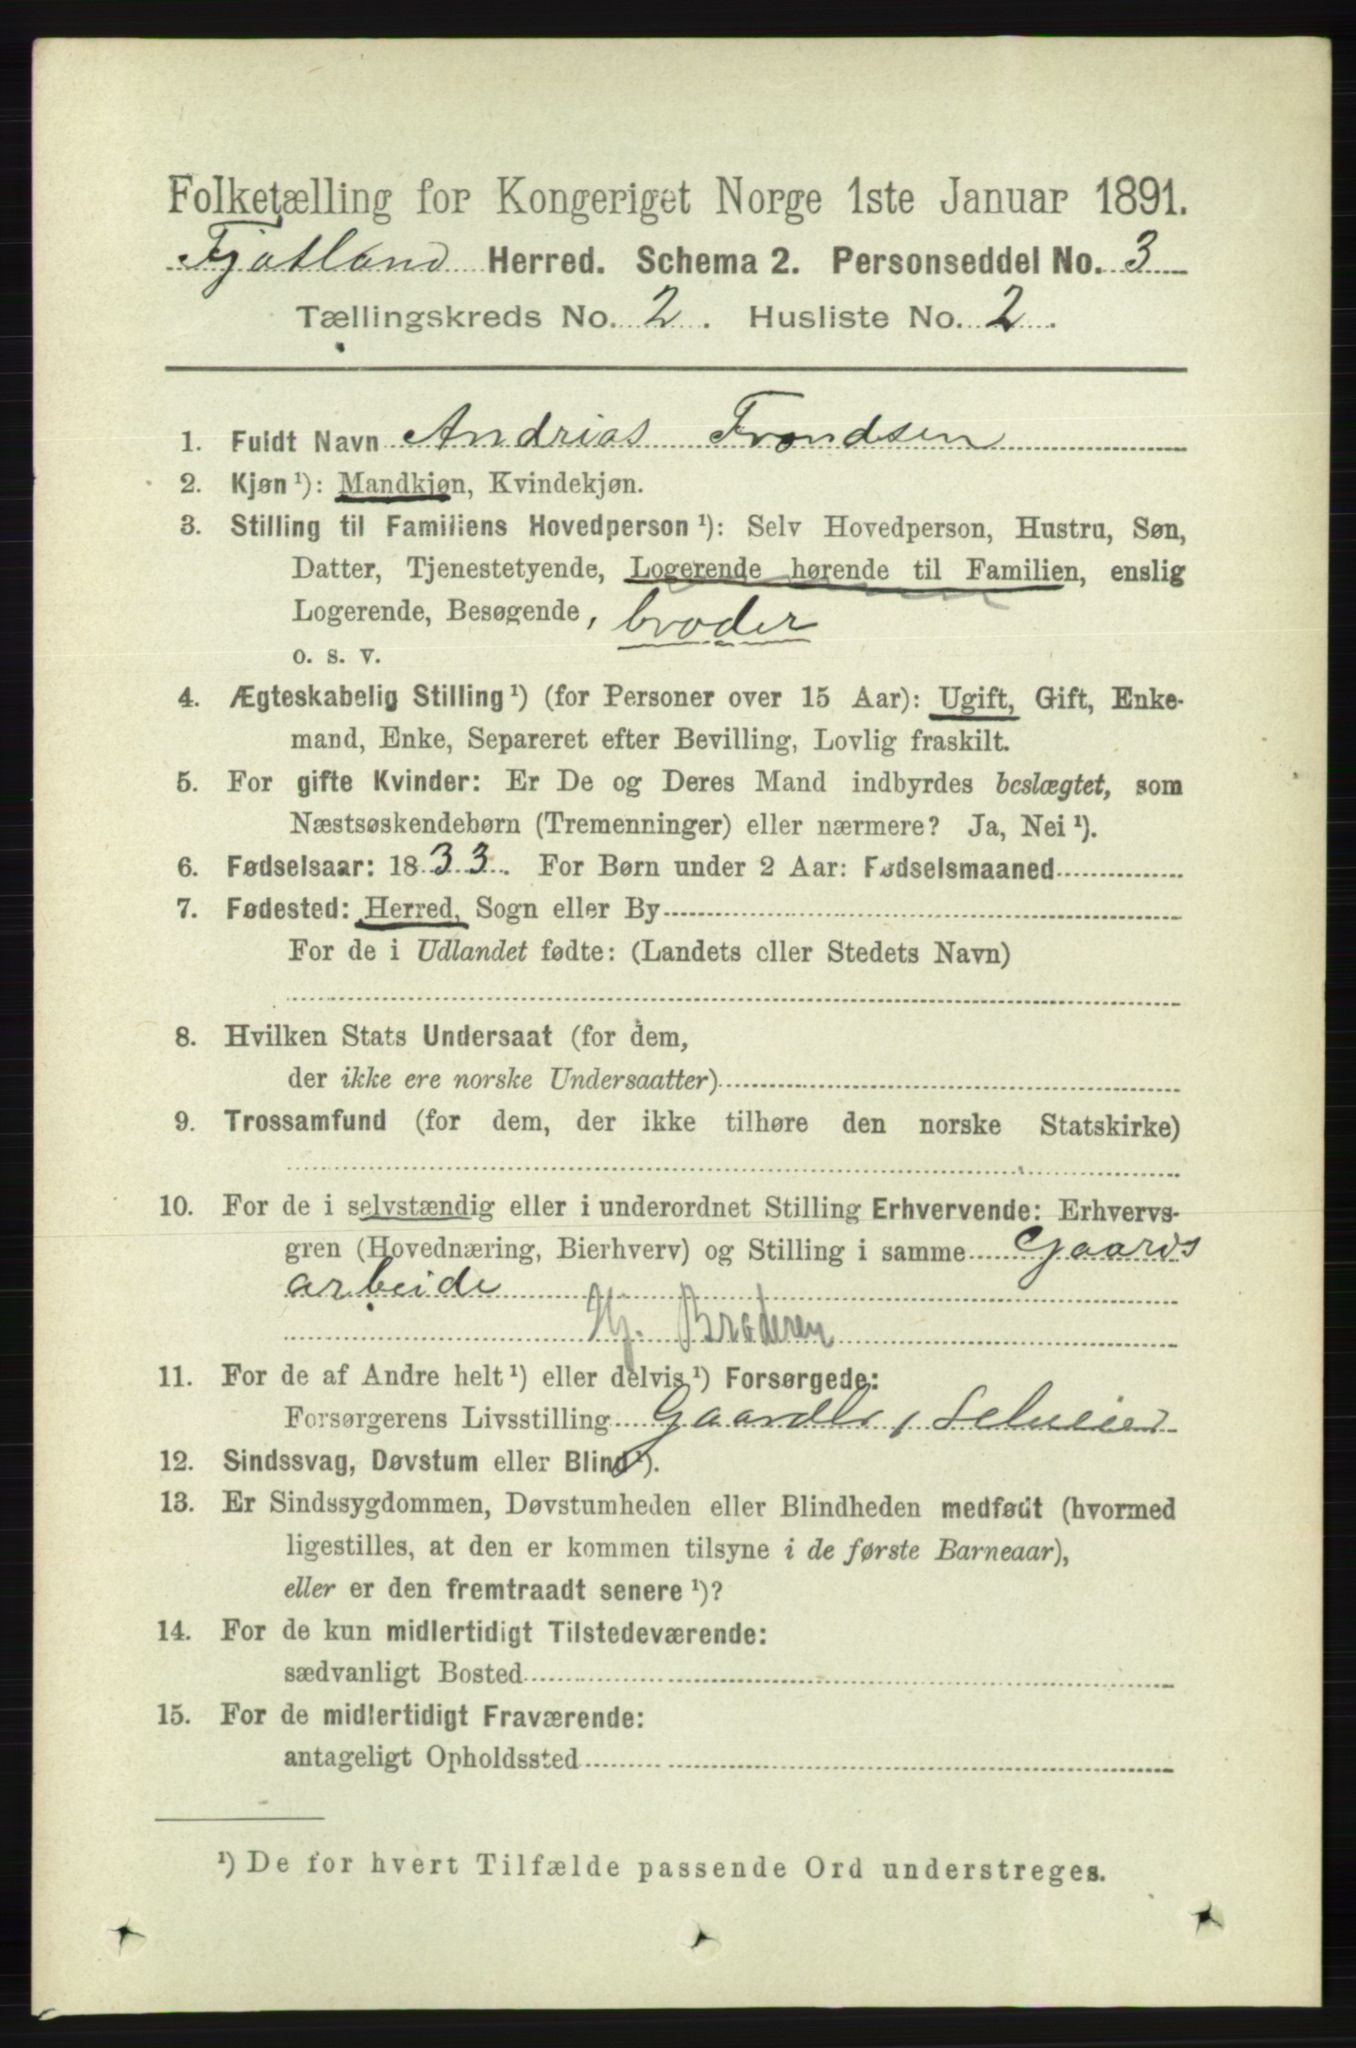 Folketælling for Kongeriget Norge 1ste Januar 1891.
Fjotland Herred. Schema 2. Personseddel No. 3
Tællingskreds No. 2. Husliste No. 2.
1. Fuldt Navn Andrias Trondsen
2. Kjøn ¹): Mandkjøn, Kvindekjøn.
3. Stilling til Familiens Hovedperson ¹): Selv Hovedperson, Hustru, Søn,
Datter, Tjenestetyende, Logerende hørende til Familien, enslig
Logerende, Besøgende, broder
o. s. v.
4. Ægteskabelig Stilling ¹) (for Personer over 15 Aar): Ugift, Gift, Enke-
mand, Enke, Separeret efter Bevilling, Lovlig fraskilt.
5. For gifte Kvinder: Er De og Deres Mand indbyrdes beslægtet, som
Næstsøskendebørn (Tremenninger) eller nærmere? Ja, Nei ¹).
6. Fødselsaar: 1833. For Børn under 2 Aar: Fødselsmaaned
7. Fødested: Herred, Sogn eller By
For de i Udlandet fødte: (Landets eller Stedets Navn)
8. Hvilken Stats Undersaat (for dem,
der ikke ere norske Undersaatter)
9. Trossamfund (for dem, der ikke tilhøre den norske Statskirke)
10. For de i selvstændig eller i underordnet Stilling Erhvervende: Erhvervs-
gren (Hovednæring, Bierhverv) og Stilling i samme Gaards
arbeide
Hj. Broderen
11. For de af Andre helt ¹) eller delvis ¹) Forsørgede:
Forsørgerens Livsstilling Gaardbr, Selveier
12. Sindssvag, Døvstum eller Blind ¹).
13. Er Sindssygdommen, Døvstumheden eller Blindheden medfødt (hvormed
ligestilles, at den er kommen tilsyne i de første Barneaar),
eller er den fremtraadt senere ¹)?
14. For de kun midlertidigt Tilstedeværende:
sædvanligt Bosted
15. For de midlertidigt Fraværende:
antageligt Opholdssted
¹) De for hvert Tilfælde passende Ord understreges.